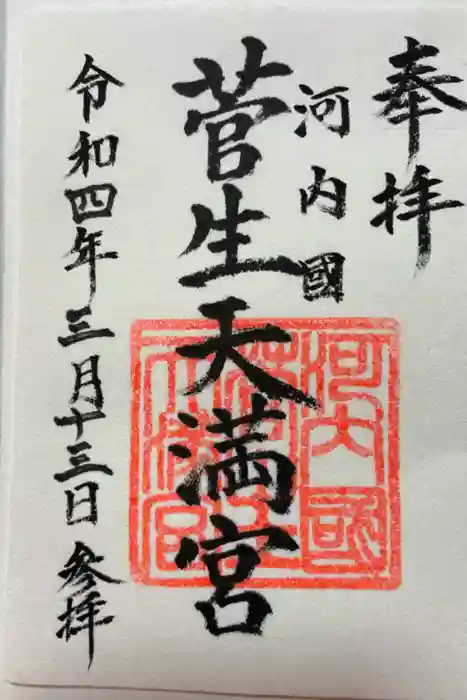 奉拝
河内國
菅生天満宮
令和四年三月十三日 参拝
河内國
菅生天
満宮